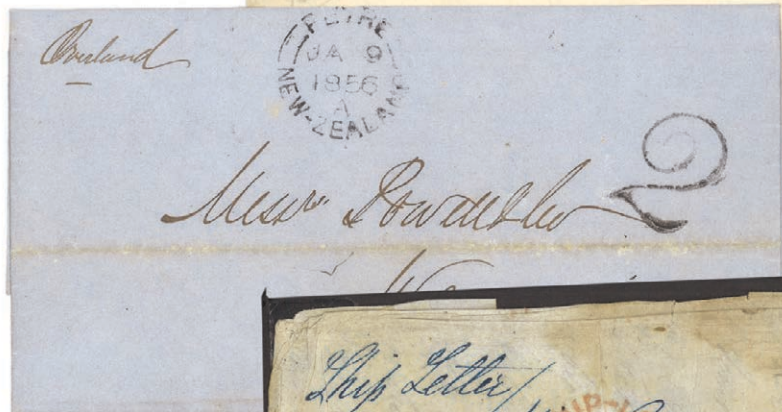 Overland
PETRE
JA 9
1856
A
NEW-ZEALAND
2
Messrs
Ship Letter/